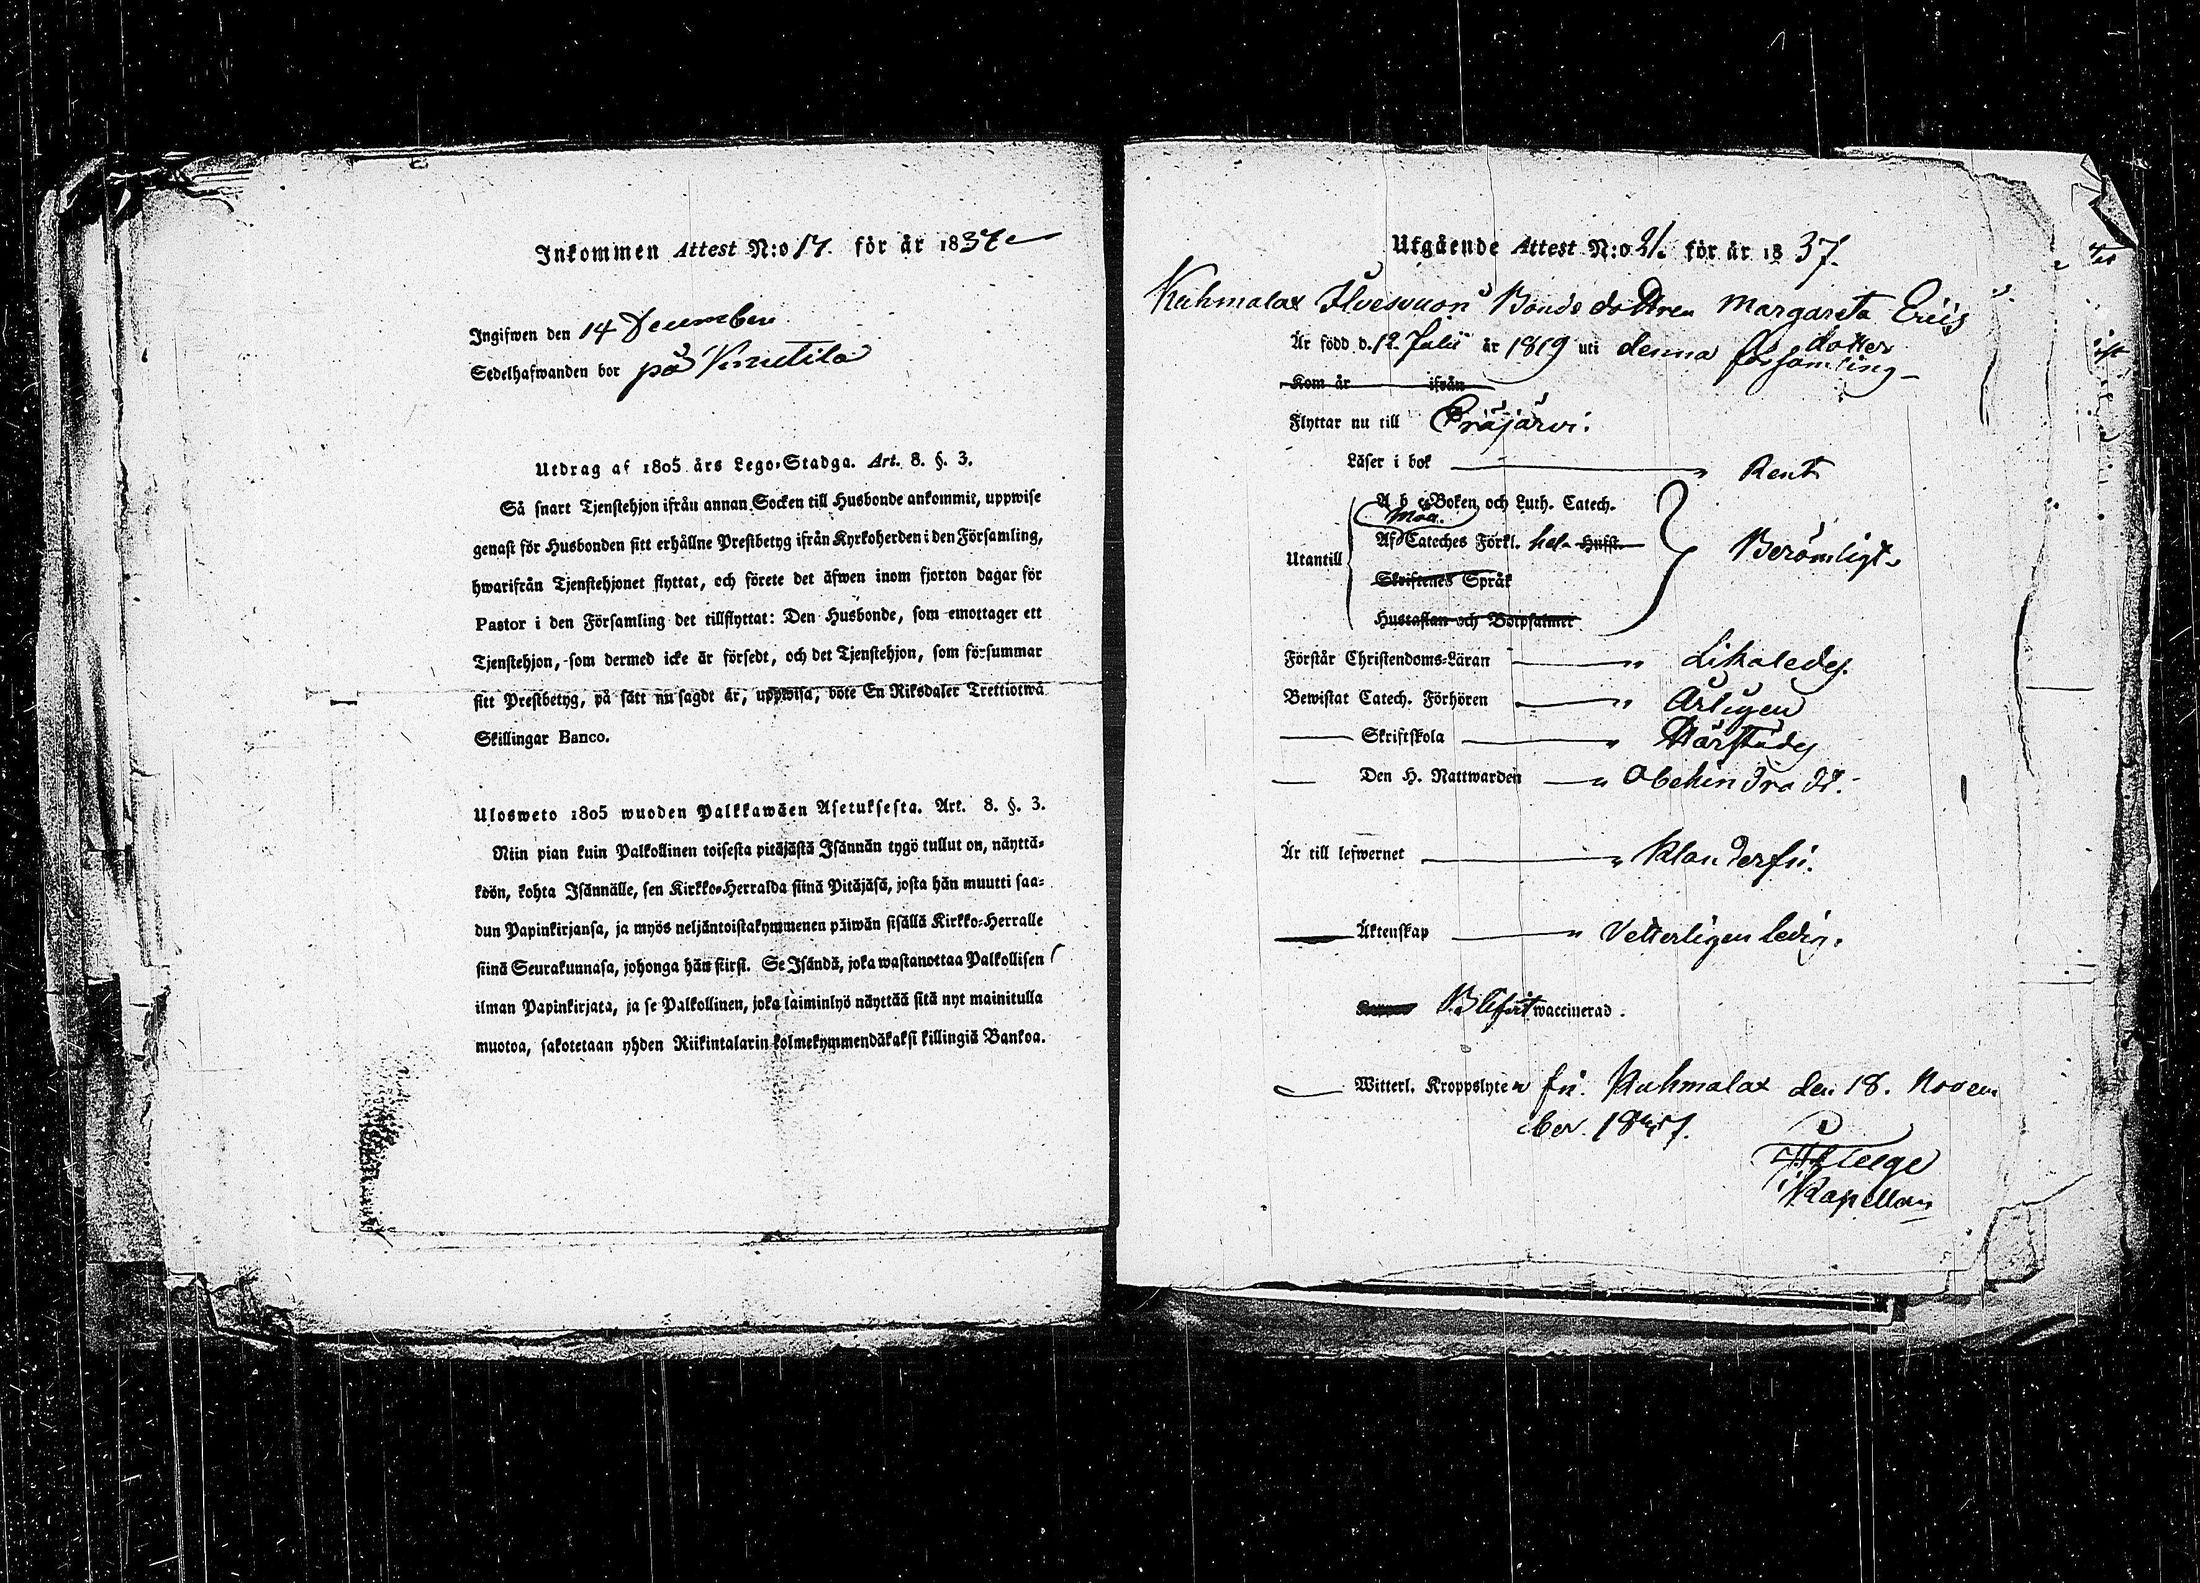 Inkommen Attest N:o 17. för år 1837
Ingifwen den 14 December
Sedelhafwanden bor på Knutila
Utdrag af 1805 års Lego-Stadga. Art. 8. §. 3.
Så snart Tjenstehjon ifrån annan Socken till Husbonde ankommit, uppwise
genast för Husbonden sitt erhållne Prestbetyg ifrån Kyrkoherden i den Församling,
hwarifrån Tjenstehjonet flyttat, och förete det äfwen inom fjorton dagar för
Pastor i den Församling det tillflyttat: Den Husbonde, som emottager ett
Tjenstehjon, som dermed icke är försedt, och det Tjenstehjon, som försummar
sitt Prestbetyg, på sätt nu sagdt är, uppwisa, böte En Riksdaler Trettiotwå
Skillingar Banco.
Ulosweto 1805 wuoden Palkkawäen Asetuksesta. Art. 8. §. 3.
Niin pian kuin Palkollinen toisesta pitäjästä Isännän tygö tullut on, näyttä-
köön, kohta Isännälle, sen Kirkko-Herralda siinä Pitäjäsä, josta hän muutti saa-
dun Papinkirjansa, ja myös neljäntoistakymmenen päiwän sisällä Kirkko-Herralle
siinä Seurakunnasa, johonga hän siirsi. Se Isändä, joka wastanottaa Palkollisen
ilman Papinkirjata, ja se Palkollinen, joka laiminlyö näyttää sitä nyt mainitulla
muotoa, sakotetaan yhden Riikintalarin kolmekymmendäkaksi killingiä Bankoa.
Utgående Attest N:o 21. för år 1837.
Kuhmalax Ilvesvuori Bonde dottren Margareta Erics
dotter
Är född d. 12. Julii år 1819 uti denna församling
Kom år ifrån
Flyttar nu till Präjärvi.
Läser i bok Rent
A b c Boken och Luth. Catech.
Moa.
Af Cateches Förkl. hela Husst.
Utantill Berömligt
Skriftenes Språk
Hustaflan och Botpsalmer
Förstår Christendoms-Läran Likaledes.
Bewistat Catech. Förhören Årligen
Skriftskola Härstädes
Den H. Nattwarden Obehindradt.
Är till lefwernet Klanderfri.
Äktenskap Vetterligen ledig.
Blifvit waccinerad.
Witterl. Kroppslyten fri. Kuhmalax den 18. Novem
ber. 1837.
Kapellan